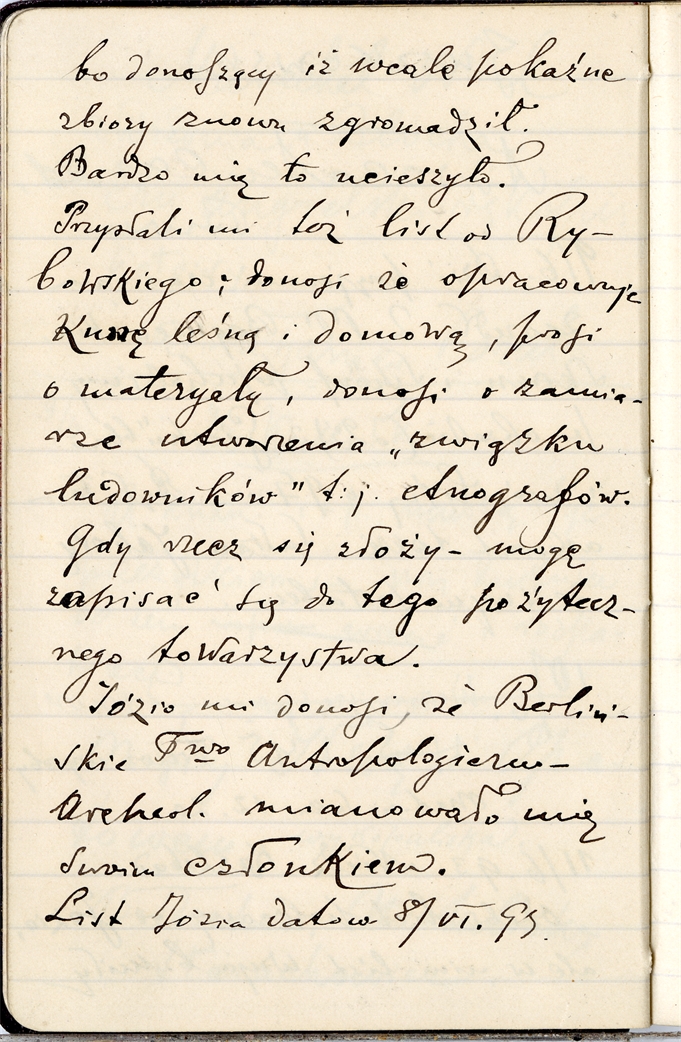 bo donoszący iż wcale pokaźne
zbiory znowu zgromadził.
Bardzo mię to ucieszyło.
Przysłali mi też list od Ry-
bowskiego; donosi że opracowuje
Kunę leśną i domową, prosi
o materyały, donosi o zamia-
rze utworzenia „związku
ludowników" t:j. etnografów.
Gdy rzecz się złoży - mogę
zapisać się do tego pożytecz-
nego towarzystwa.
Józio mi donosi, że Berliń-
skie Two Antropologiczn-
Archeol. mianowało mię
swoim członkiem.
List Józia datow 8/VI. 93.